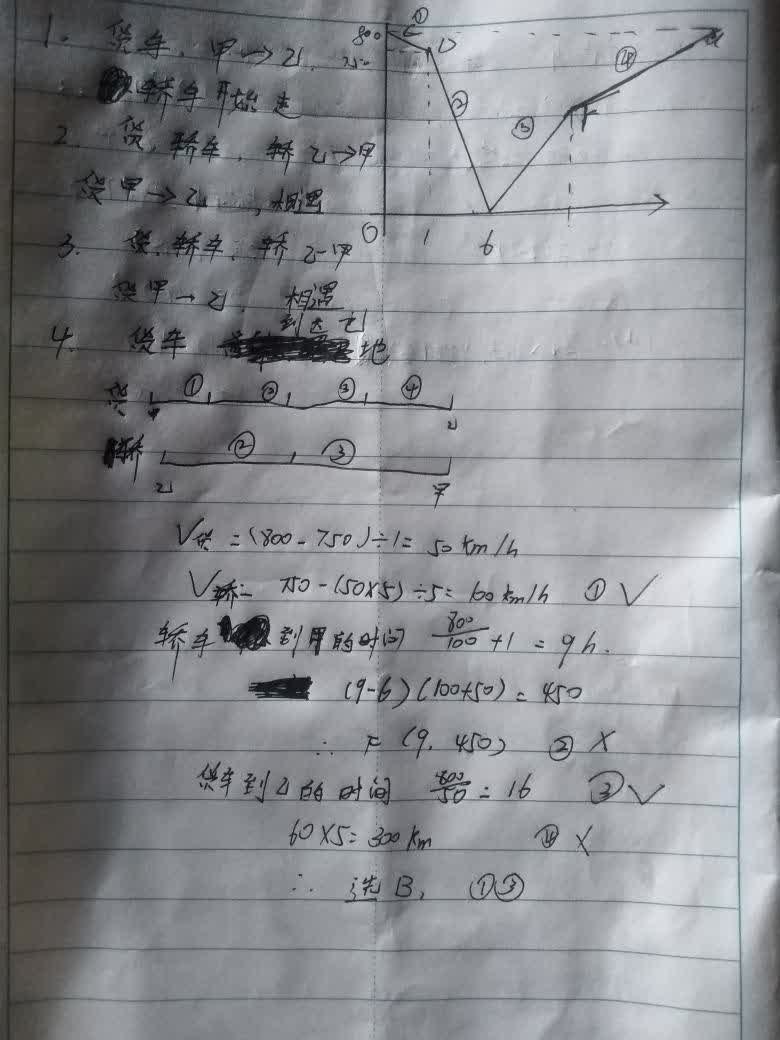 1. 货车. 甲→乙.
轿车开始走
2. 货, 轿车, 轿乙→甲
货甲→乙, 相遇
3. 货. 轿车. 轿乙-甲
货甲→乙. 相遇
4. 货车 到达乙地
800 C ① D
750
② ③ F ④
O 1 6
货 ① ② ③ ④
甲 乙
轿 ② ③
乙 甲
V货 = (800-750)÷1= 50km/h
V轿= 750-(50×5)÷5= 100km/h ① ✓
轿车到甲的时间 800/100+1 = 9h.
(9-6)(100+50) = 450
∴ F (9, 450) ② ×
货车到乙的时间 800/50 = 16 ③ ✓
60×5=300km ④ ×
∴ 选B, ①③